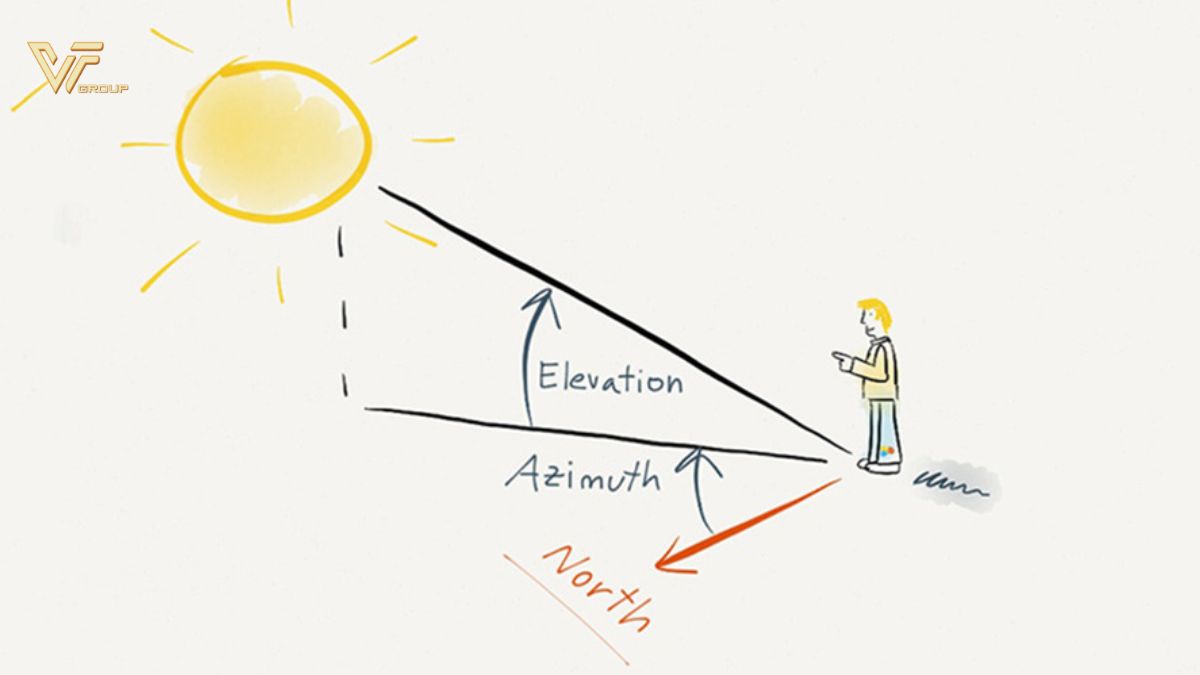 VF
GROUP
Elevation
Azimuth
North